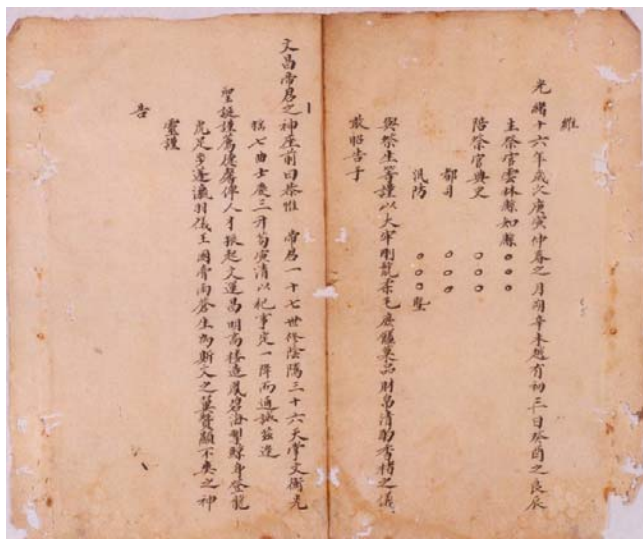 維
光緒十六年歲次庚寅仲春之月朔辛未越有初三日癸酉之良辰
主祭官雲林縣知縣○○○
陪祭官典史○○○
都司○○○
汛防○○○暨
與祭生等謹以大牢剛鬣柔毛庶饈菓品財帛清酌香楮之儀
敢昭告于
文昌帝君之神座前曰恭惟 帝君一十七世修陰陽三十六天掌文衡光
七曲士慶三升荀寅清以祀事定一降而通誠茲逢
聖誕謹薦德馨俾人才振起文運昌明高樓造鳳碧海掣鯨身登龍
虎足步蓬瀛羽儀王國膏雨蒼生為斯文之冀贊顯不奧之神
靈謹
告